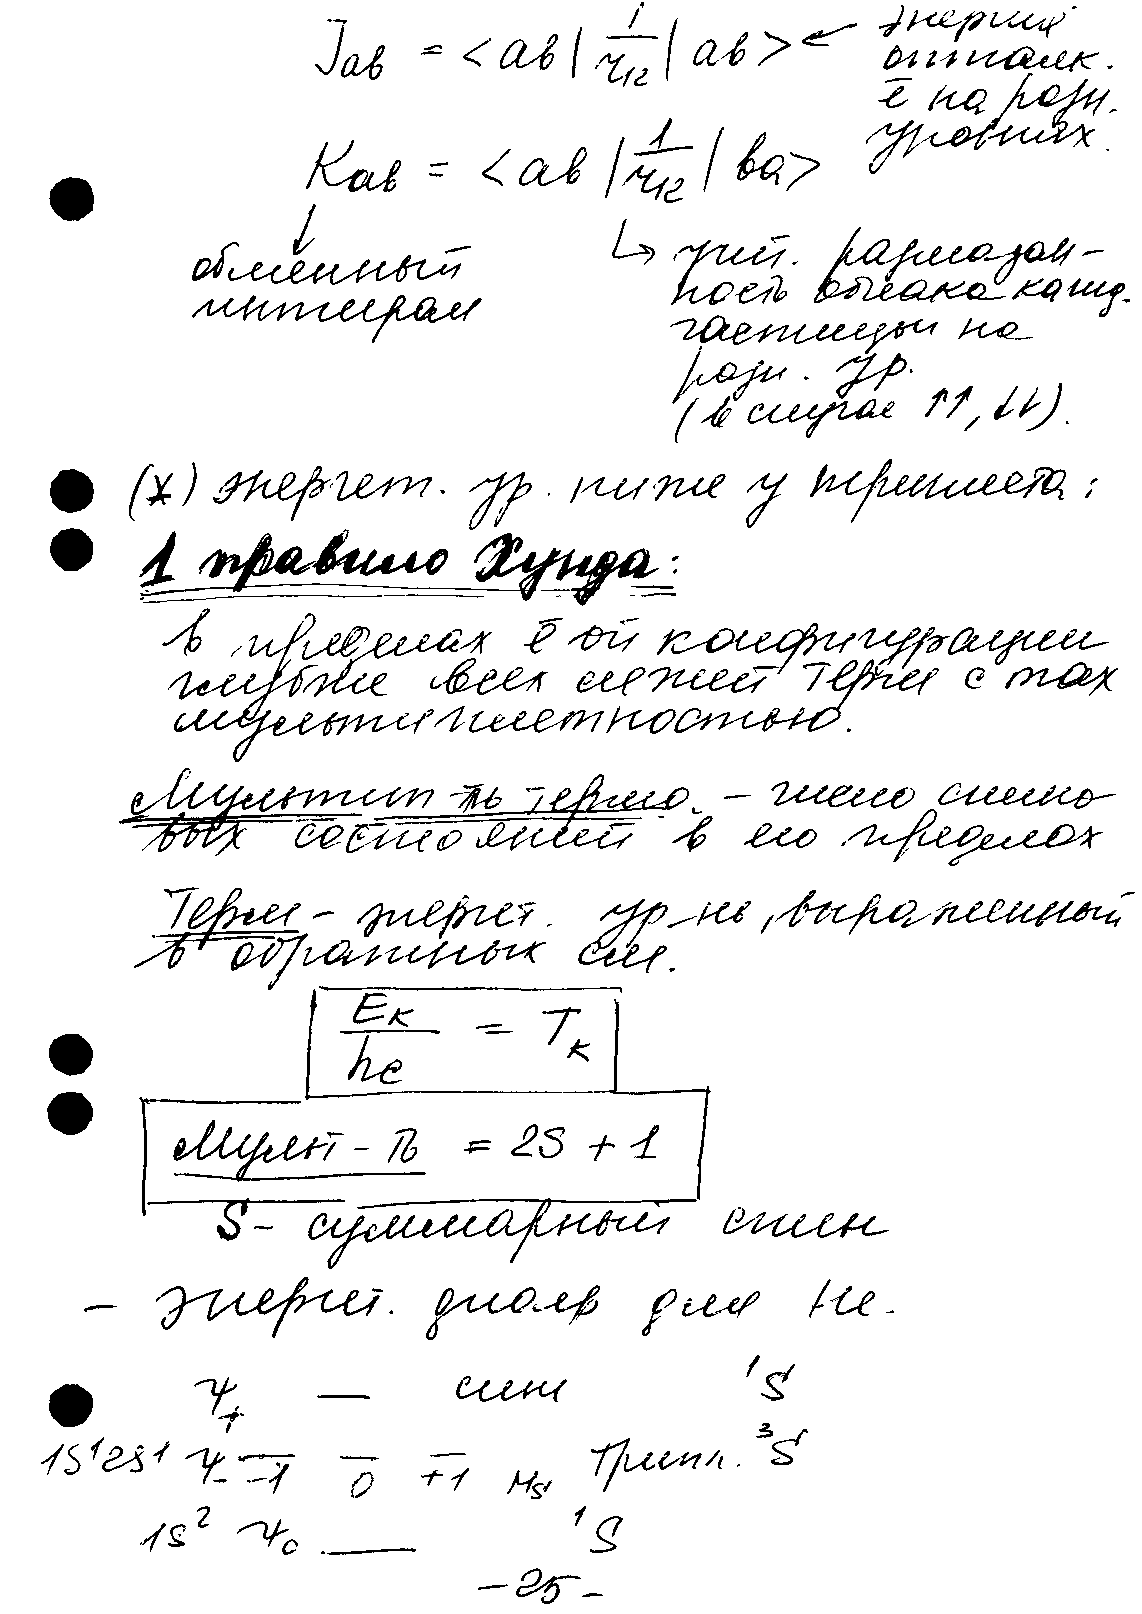 Jав = <ав|1/r₁₂|ав> ← энергия
отталк.
ē на разн.
уровнях.
Kав = <ав|1/r₁₂|ва>
обменный
интеграл
↳ учит. размазан-
ность облака кажд.
частицы на
разн. ур.
(в случае ↑↑, ↓↓).
(*) энергет. ур. ниже у триплета:
1 правило Хунда:
в пределах ē ой конфигурации
глубже всех лежит терм с max
мультиплетностью.
Мультип-ть терма. – число спино-
вых состояний в его пределах
Терм – энергет. ур-нь, выраженный
в обратных см.
Eк/hc = Tк
Мульт-ть = 2S + 1
S – суммарный спин
– Энергет. диагр для He.
Ψ₊ — синг ¹S
1S¹2S¹ Ψ₋ -1 0 +1 Ms Трипл. ³S
1S² Ψ₀ — ¹S
-25-